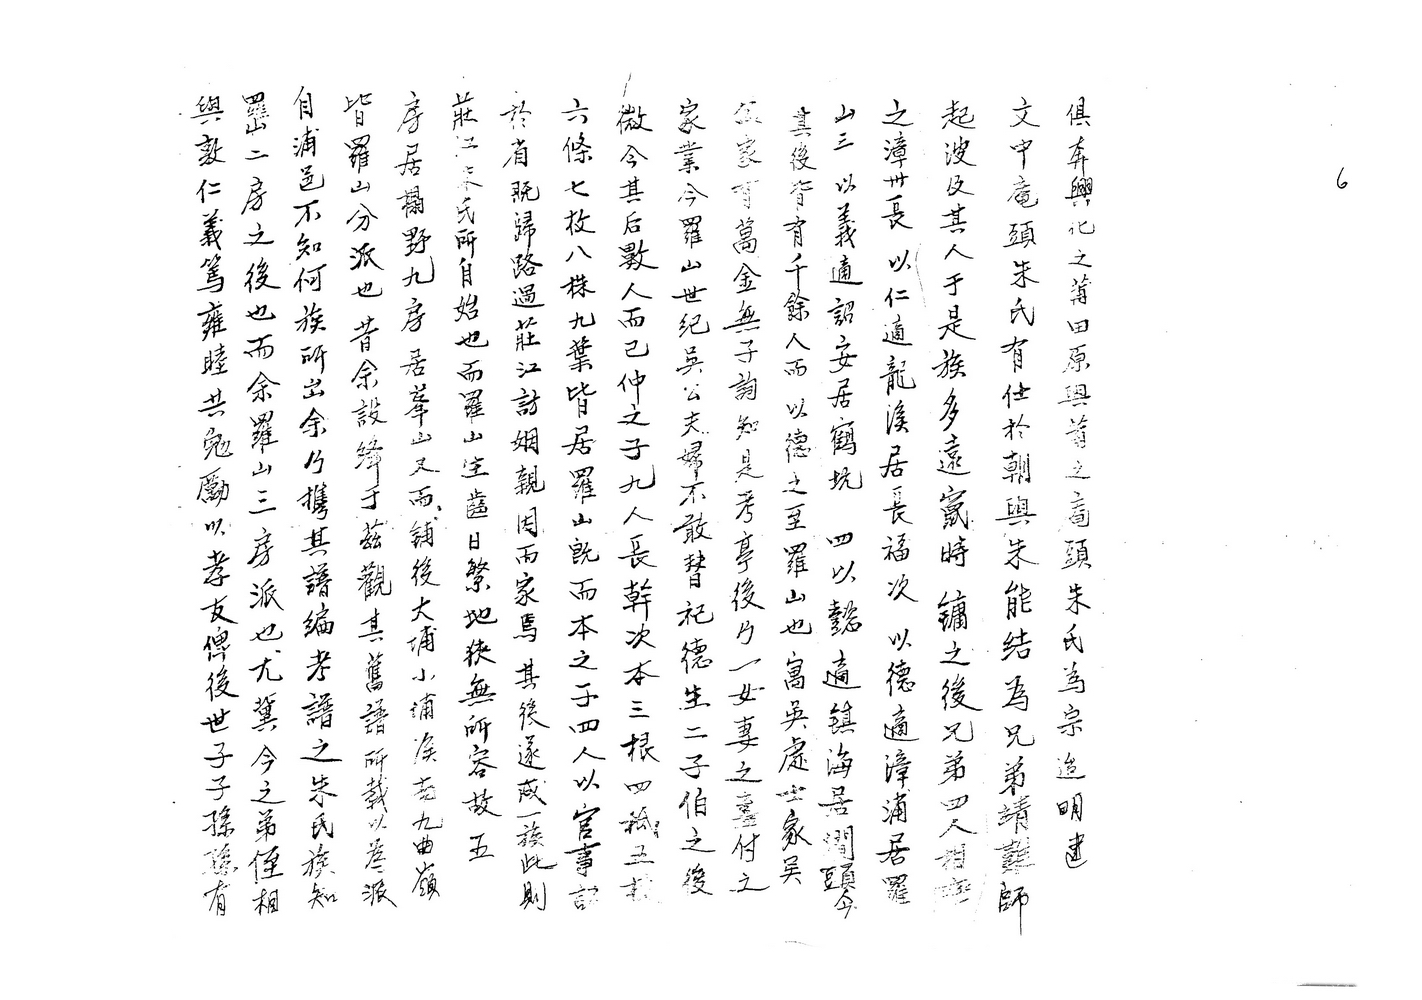 6
俱奔興化之莆田原與莆之庵頭朱氏為宗迨明建
文中庵頭朱氏有仕於朝與朱能結為兄弟靖難師
起波及其人于是族多遠竄時鏞之後兄弟四人相
之漳卅長以仁適龍溪居長福次以德適漳浦居羅
山三以義適詔安居鶴坑四以懿適鎮海居澗頭今
其後皆有千餘人而以德之至羅山也寓吳處士家吳
家有萬金無子詢知是考亭後乃一女妻之臺付之
家業今羅山世紀吳公夫婦不敢替祀德生二子伯之後
微今其后數人而已仲之子九人長幹次本三根四祗五
六條七枚八株九葉皆居羅山既而本之子四人以官事
於省既歸路過莊江訪姻親因而家焉其後遂成一族此則
莊江朱氏所自始也而羅山生齒日繁地狹無所容故五
房居楊野九房居峯山又而鋪後大埔小埔溪九曲嶺
皆羅山分派也昔余設絳于茲觀其舊譜所載以為派
自浦邑不知何族所出余乃携其譜編考譜之朱氏族知
羅二房之後也而余羅山三房派也尤冀今之弟侄相
與敦仁義篤雍睦共勉勵以孝友俾後世子子孫孫有